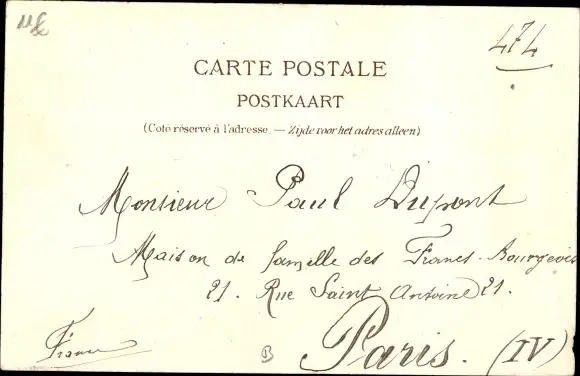 474
CARTE POSTALE
POSTKAART
(Coté réservé à l'adresse. — Zijde voor het adres alleen)
Monsieur Paul Dupont
Maison de famille des Francs-Bourgeois
21. Rue Saint Antoine 21.
Paris. (IV)
France
B